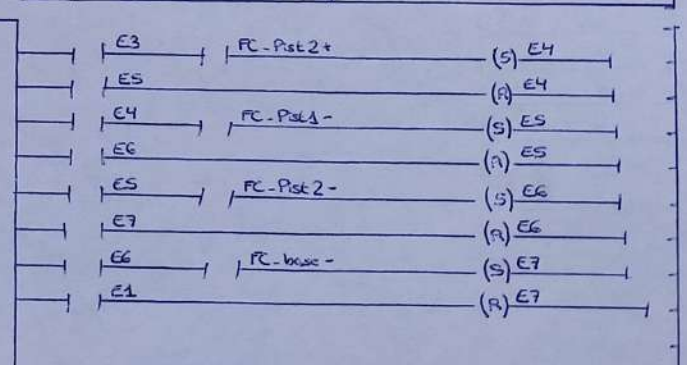 E3 FC-Pist2+ (S) E4
E5 (R) E4
E4 FC-Pist1- (S) E5
E6 (R) E5
E5 FC-Pist2- (S) E6
E7 (R) E6
E6 FC-base- (S) E7
E1 (R) E7